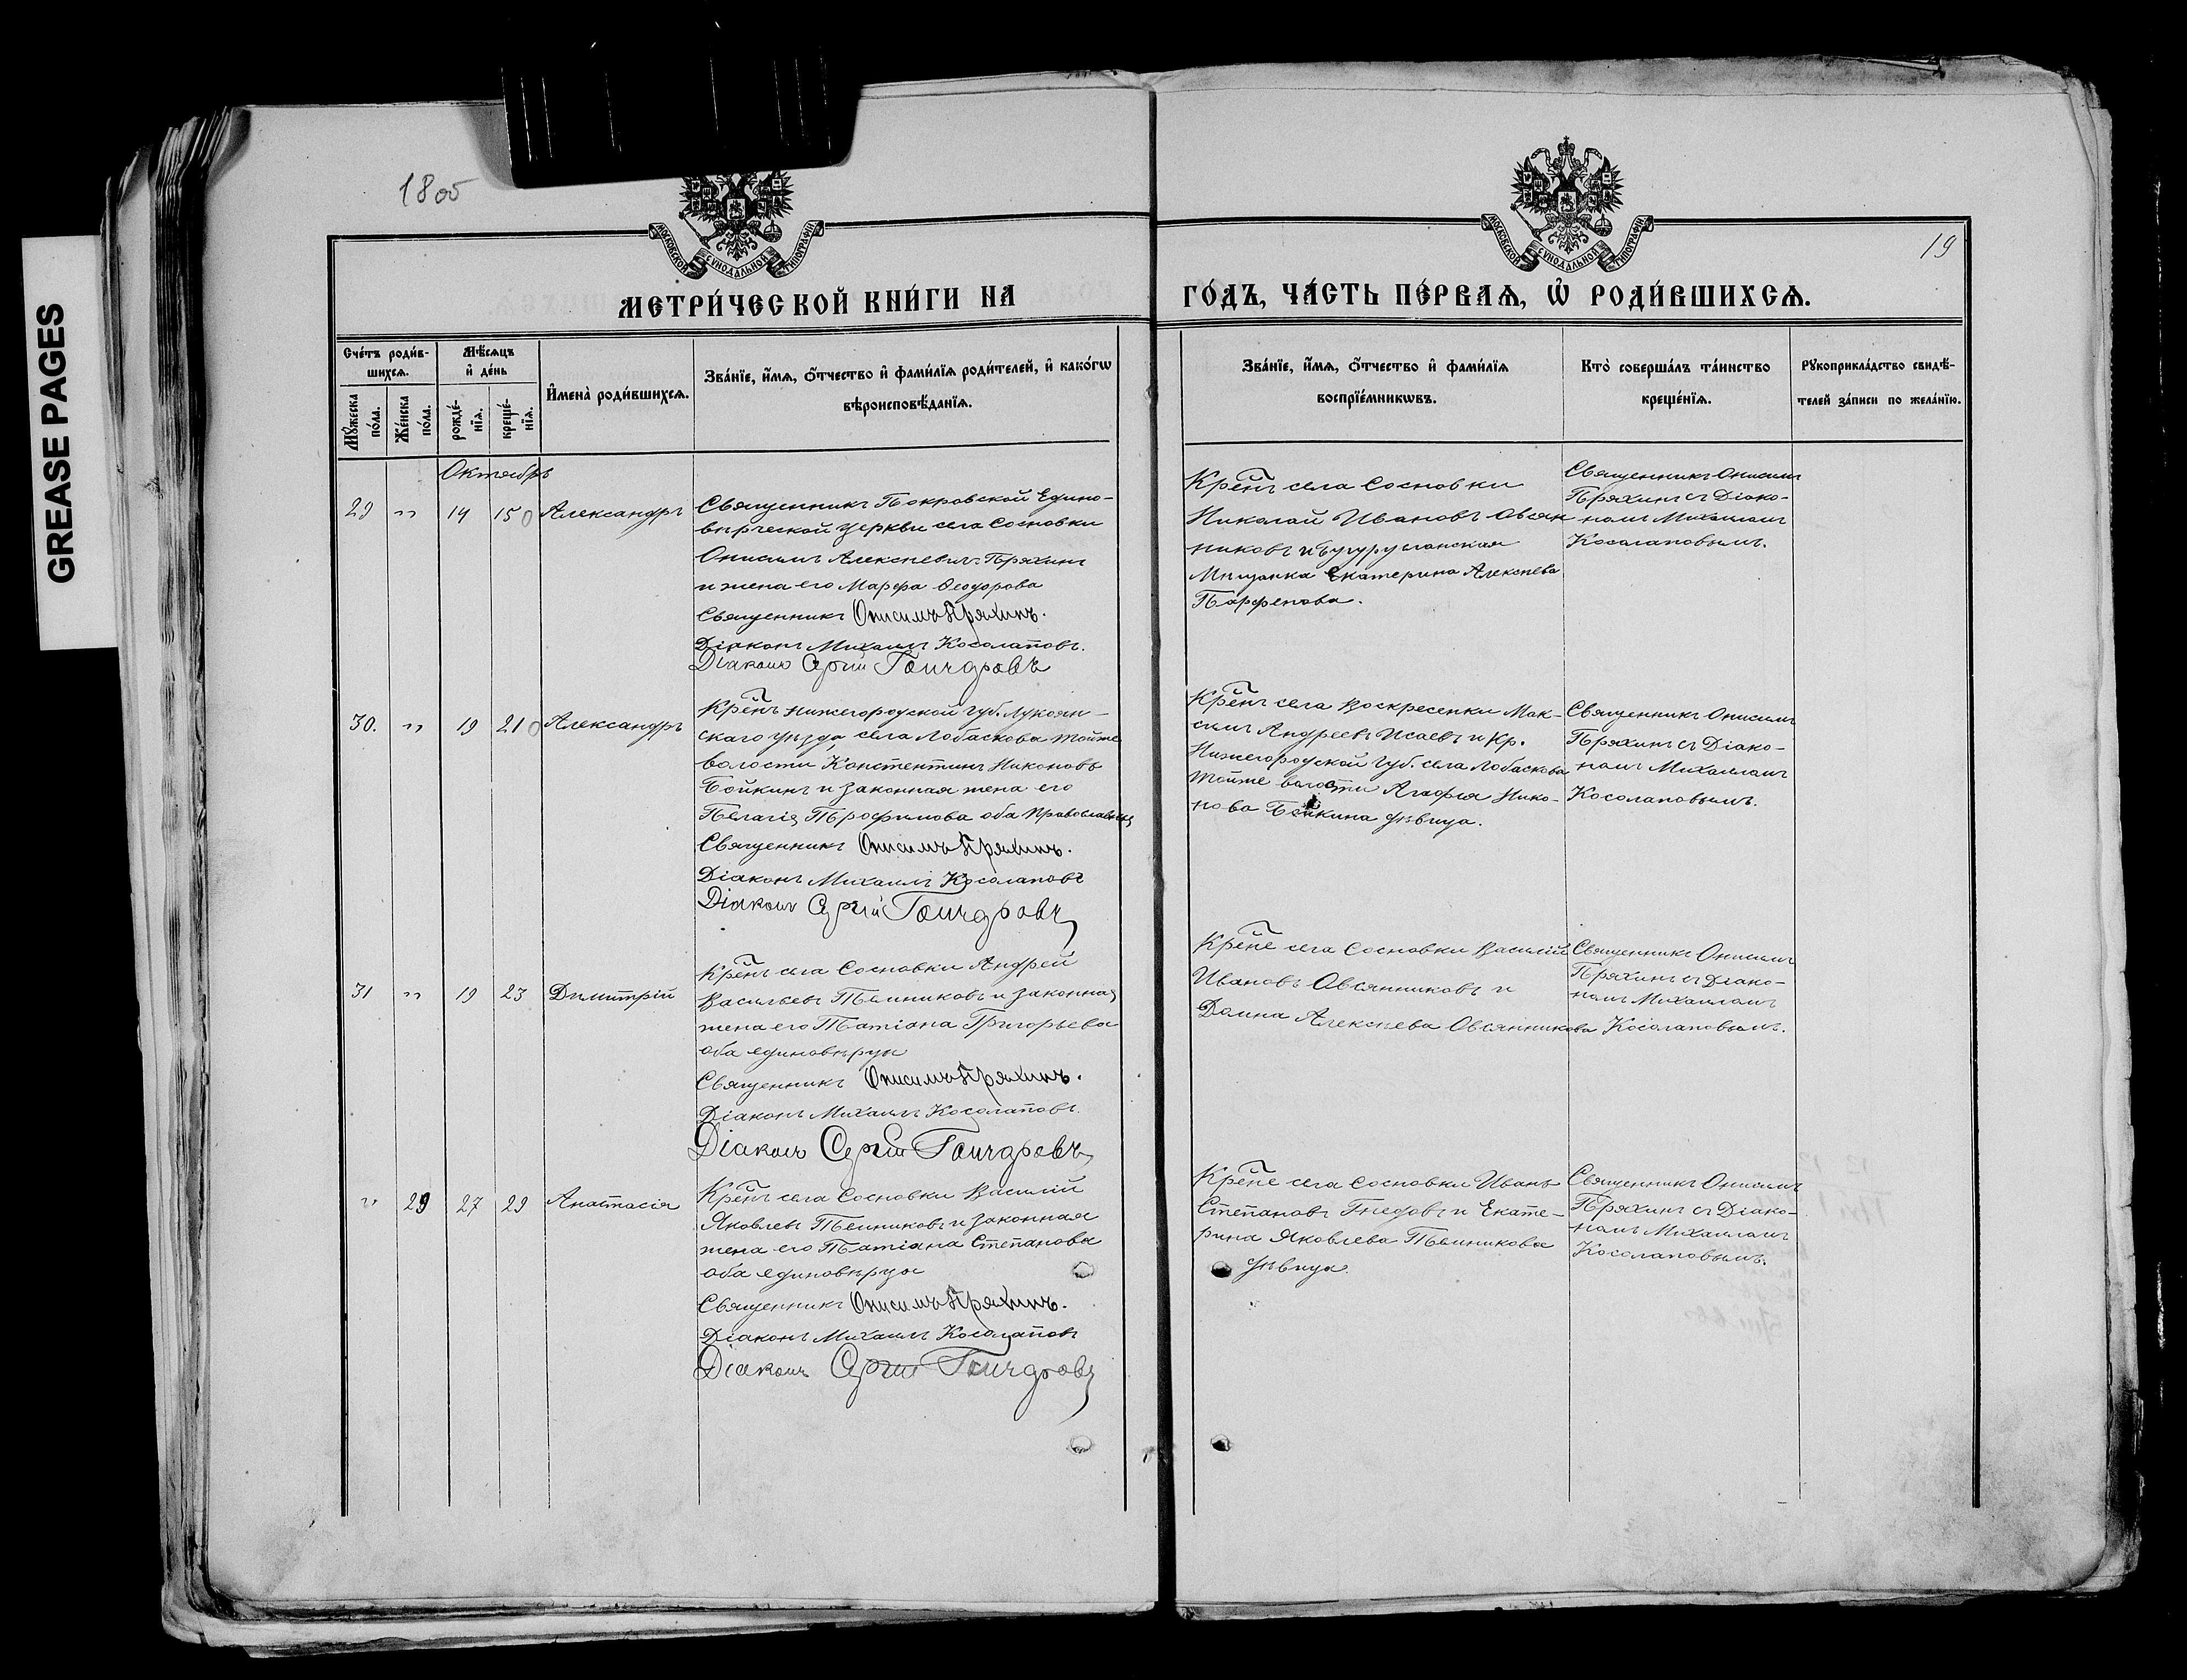 GREASE PAGES
18
МОСКОВСКОЙ СѴНОДАЛЬНОЙ ТИПОГРАФІИ
МОСКОВСКОЙ СѴНОДАЛЬНОЙ ТИПОГРАФІИ
19
МЕТРИ́ЧЕСКОЙ КНИ́ГИ НА
ГО́ДЪ, ЧА́СТЬ ПЕ́РВАѦ, Ѡ҆ РОДИ́ВШИХСѦ.
Сче́тъ роди́в-
шихсѧ.
Мꙋ́жеска по́ла.
Же́нска по́ла.
Мѣ́сѧцъ
и҆ де́нь
рожде́-
нїѧ.
креще́-
нїѧ.
И҆мена̀ роди́вшихсѧ.
Зва́нїе, и҆́мѧ, ѻ҆́тчество и҆ фами́лїѧ роди́телей, и҆ како́гѡ
вѣроисповѣ́данїѧ.
Зва́нїе, и҆́мѧ, ѻ҆́тчество и҆ фами́лїѧ
воспрїе́мникѡвъ.
Кто̀ соверша́лъ та́инство
креще́нїѧ.
Рꙋкоприкла́дство свидѣ́-
телей за́писи по жела́нїю.
Октябрь
29 " 14 15 Александръ
Священникъ Покровской Едино-
вѣрческой церкви села Сосновки
Онисимъ Алексѣевичъ Пряхинъ
и жена его Марфа Ѳеодорова
Священникъ Онисимъ Пряхинъ.
Діаконъ Михаилъ Косолаповъ.
Діаконъ Сергій Гончаровъ
Крен҃ъ села Сосновки
Николай Ивановъ Овсян
никовъ и Бугурусланская
Мѣщанка Екатерина Алексѣева
Парфенова.
Священникъ Онисимъ
Пряхинъ съ Діако-
номъ Михаиломъ
Косолаповымъ.
30. " 19 21 Александръ
Крен҃ъ Нижегородской губ. Лукоян-
скаго уѣзда, села Лобаскова тойже
волости Константинъ Никоновъ
Бойкинъ и законная жена его
Пелагія Трофимова оба православные
Священникъ Онисимъ Пряхинъ.
Діаконъ Михаилъ Косолаповъ
Діаконъ Сергій Гончаровъ
Крен҃ъ села Воскресенки Мак-
симъ Андреевъ Исаевъ и Кр.
Нижегородской Губ. села Лобаскова
тойже волости Агафія Нико-
нова Бойкина дѣвица.
Священникъ Онисимъ
Пряхинъ съ Діако-
номъ Михаиломъ
Косолаповымъ.
31 " 19 23 Димитрій
Крен҃ъ села Сосновки Андрей
Васильевъ Темниковъ и законная
жена его Татіана Григорьева
оба единовѣрцы
Священникъ Онисимъ Пряхинъ.
Діаконъ Михаилъ Косолаповъ.
Діаконъ Сергій Гончаровъ
Крен҃е села Сосновки Василій
Ивановъ Овсянниковъ и
Домна Алексѣева Овсянникова
Священникъ Онисимъ
Пряхинъ съ Діако-
номъ Михаиломъ
Косолаповымъ.
" 29 27 29 Анастасія
Крен҃ъ села Сосновки Василій
Яковлевъ Темниковъ и законная
жена его Татіана Степанова
оба единовѣрцы
Священникъ Онисимъ Пряхинъ.
Діаконъ Михаилъ Косолаповъ
Діаконъ Сергій Гончаровъ
Крен҃е села Сосновки Иванъ
Степановъ Гнедовъ и Екате-
рина Яковлева Темникова
дѣвица.
Священникъ Онисимъ
Пряхинъ съ Діако-
номъ Михаиломъ
Косолаповымъ.